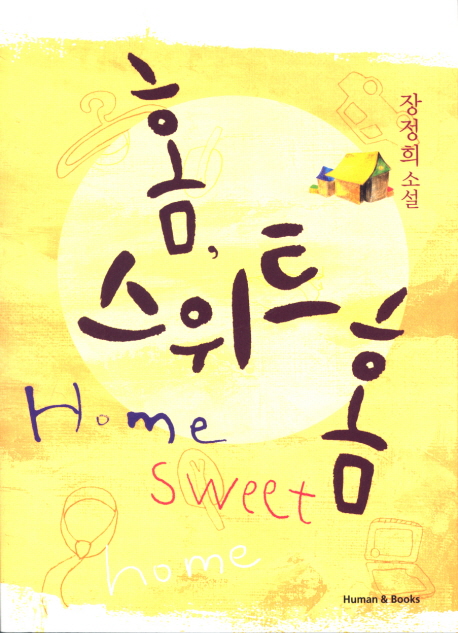 홈,
스위트
홈
장정희 소설
Home
sweet
home
Human & Books